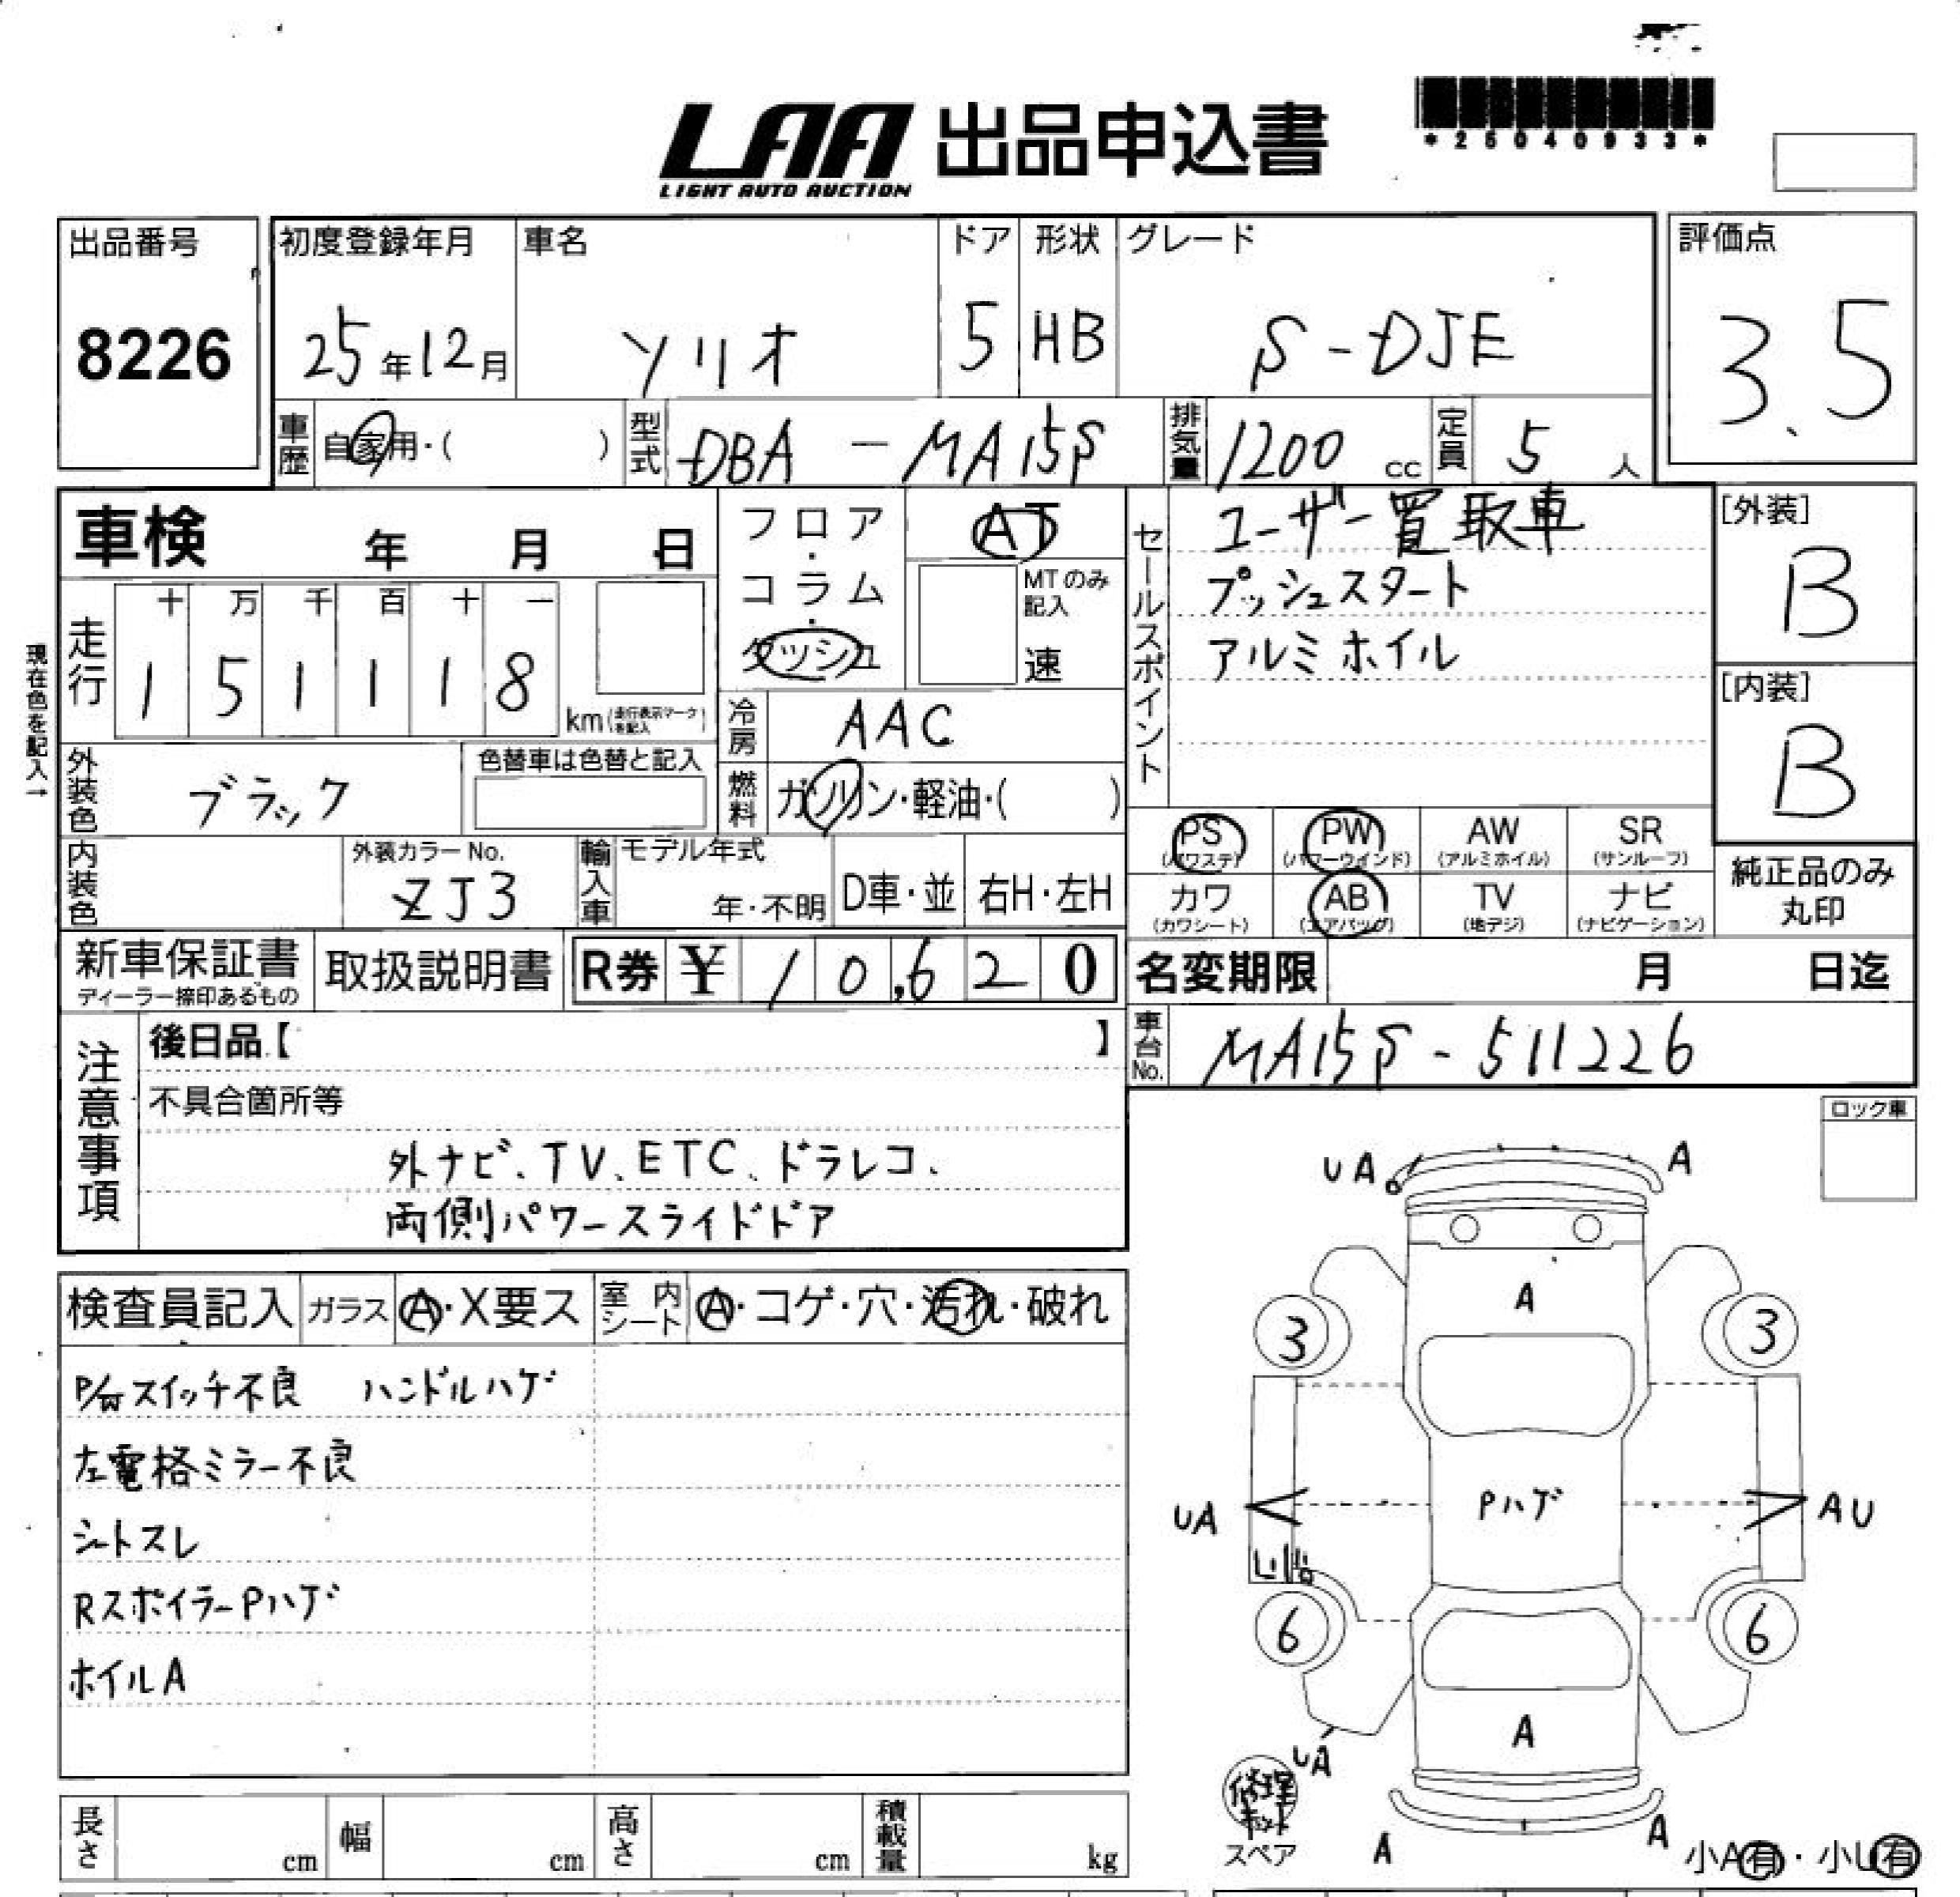 LAA 出品申込書
LIGHT AUTO AUCTION
*25040933*
出品番号
8226
初度登録年月
25年12月
車名
ソリオ
ドア
5
形状
HB
グレード
S-DJE
評価点
3.5
車歴
自家用・( )
型式
DBA-MA15S
排気量
1200 cc
定員
5 人
車検 年 月 日
フロア・コラム・ダッシュ
AT
MTのみ記入
速
セールスポイント
ユーザー買取車
プッシュスタート
アルミホイル
[外装]
B
[内装]
B
現在色を記入→
走行
十 万 千 百 十 一
1 5 1 1 1 8
km(走行表示マークを記入)
冷房
AAC
外装色
ブラック
色替車は色替と記入
燃料
ガソリン・軽油・( )
PS
(パワステ)
PW
(パワーウインド)
AW
(アルミホイル)
SR
(サンルーフ)
カワ
(カワシート)
AB
(エアバッグ)
TV
(地デジ)
ナビ
(ナビゲーション)
純正品のみ
丸印
内装色
外装カラーNo.
ZJ3
輸入車
モデル年式
年・不明
D車・並
右H・左H
新車保証書
ディーラー捺印あるもの
取扱説明書
R券 ¥ 10,620
名変期限 月 日迄
車台No.
MA15S-511226
注意事項
後日品【 】
不具合箇所等
外ナビ、TV、ETC、ドラレコ、
両側パワースライドドア
ロック車
検査員記入
ガラス
A・X要ス
室内シート
A・コゲ・穴・汚れ・破れ
P/Wスイッチ不良 ハンドルハゲ
左電格ミラー不良
シートスレ
RスポイラーPハゲ
ホイルA
UA
A
A
3
3
UA
Pハゲ
AU
6
6
A
UA
修理キット
スペア
A
A
小A有・小U有
長さ cm
幅 cm
高さ cm
積載量 kg